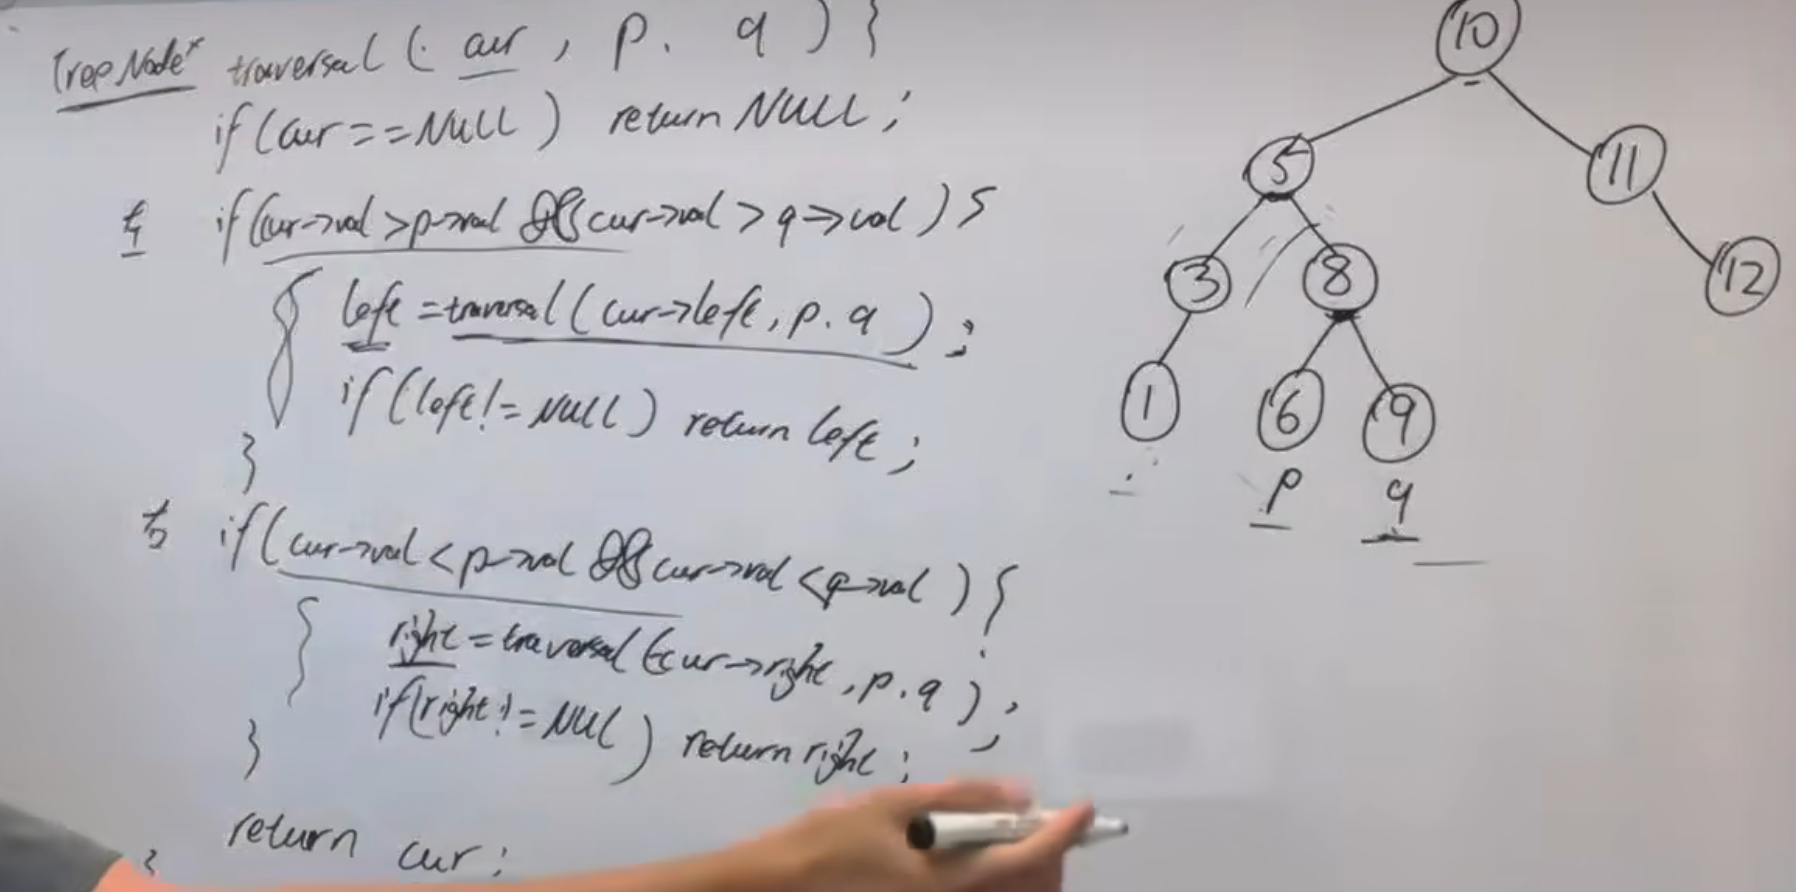 TreeNode* traversal (cur, p. q) {
if (cur == NULL) return NULL;
左 if (cur->val > p->val && cur->val > q->val) {
left = traversal (cur->left, p. q);
if (left != NULL) return left;
}
右 if (cur->val < p->val && cur->val < q->val) {
right = traversal (cur->right, p. q);
if (right != NULL) return right;
}
return cur;
}
10
5 11
3 8 12
1 6 9
p q